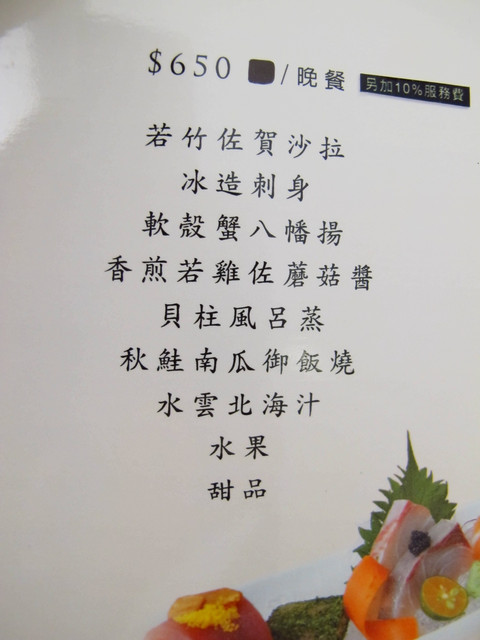 $650 /晚餐 另加10%服務費
若竹佐賀沙拉
冰造刺身
軟殼蟹八幡揚
香煎若雞佐蘑菇醬
貝柱風呂蒸
秋鮭南瓜御飯燒
水雲北海汁
水果
甜品